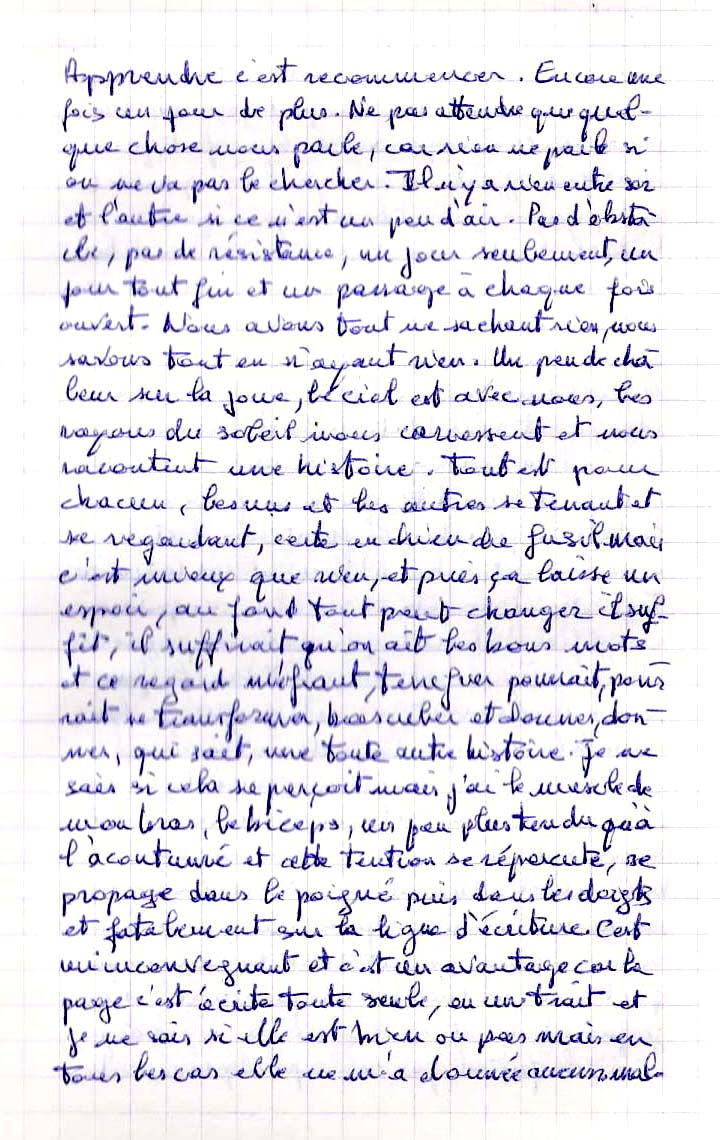 Apprendre c'est recommencer. Encore une
fois un jour de plus. Ne pas attendre que quel-
que chose nous parle, car rien ne parle si
on ne va pas le chercher. Il n'y a rien entre soi
et l'autre si ce n'est un peu d'air. Pas d'obsta-
cle, pas de résistance, un jour seulement, un
jour tout fin et un passage à chaque fois
ouvert. Nous avons tout ne sachant rien, nous
savons tout en n'ayant rien. Un peu de cha
leur sur la joue, le ciel est avec nous, les
rayons du soleil nous caressent et nous
racontent une histoire. Tout est pour
chacun, les uns et les autres se tenant et
se regardant, certe en chien de fusil mais
c'est mieux que rien, et puis ça laisse un
espoir, au fond tout peut changer il suf-
fit, il suffirait qu'on ait les bons mots
et ce regard méfiant, pourrait, pour-
rait se transformer, basculer et donner, don-
ner, qui sait, une toute autre histoire. Je ne
sais si cela se perçoit mais j'ai le muscle de
mon bras, le biceps, un peu plus tendu qu'à
l'acoutumé et cette tention se répercute, se
propage dans le poigné puis dans les doigts
et fatalement sur la ligne d'écriture. C'est
un inconvegnant et c'est un avantage car la
page c'est écrite toute seule, en un trait et
je ne sais si elle est bien ou pas mais en
tous les cas elle ne m'a donnée aucun mal.